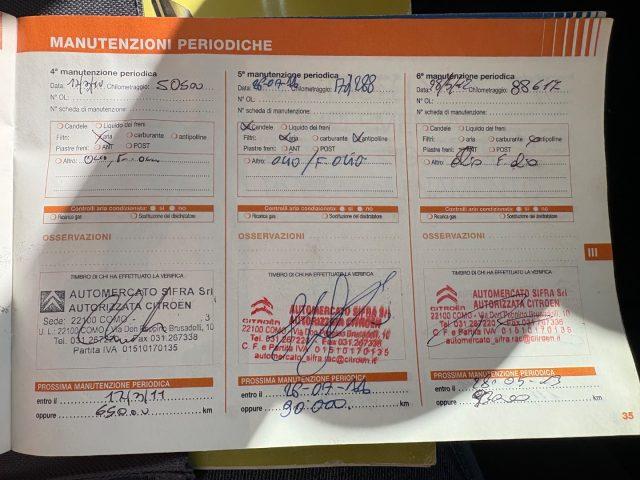 MANUTENZIONI PERIODICHE
4ª manutenzione periodica
Data: Chilometraggio: 50500
N° OL:
N° scheda di manutenzione:
Candele Liquido dei freni
Filtri: aria carburante antipolline
Piastre freni: ANT POST
Altro: olio,
Controlli aria condizionata: si no
Ricarica gas Sostituzione del disidratatore
OSSERVAZIONI
TIMBRO DI CHI HA EFFETTUATO LA VERIFICA
AUTOMERCATO SIFRA Srl
AUTORIZZATA CITROEN
Sede: 22100 COMO
22100 COMO - Via Don Peppino Brusadelli, 10
Tel. 031.267226 Fax 031.267338
Partita IVA 01510170135
PROSSIMA MANUTENZIONE PERIODICA
entro il 17/3/11
oppure 65000 km
5ª manutenzione periodica
Data: Chilometraggio:
N° OL:
N° scheda di manutenzione:
Candele Liquido dei freni
Filtri: aria carburante antipolline
Piastre freni: ANT POST
Altro: OLIO/F.OLIO
Controlli aria condizionata: si no
Ricarica gas Sostituzione del disidratatore
OSSERVAZIONI
TIMBRO DI CHI HA EFFETTUATO LA VERIFICA
CITROËN
AUTOMERCATO SIFRA Srl
AUTORIZZATA CITROEN
22100 COMO - Via Don Peppino Brusadelli,
Tel. 031.267226 Fax 031.267338
C. F. e Partita IVA 01510170135
automercato_sifra.rac@citroen.it
PROSSIMA MANUTENZIONE PERIODICA
entro il
oppure 90.000 km
6ª manutenzione periodica
Data: Chilometraggio: 88617
N° OL:
N° scheda di manutenzione:
Candele Liquido dei freni
Filtri: aria carburante antipolline
Piastre freni: ANT POST
Altro: Olio F. olio
Controlli aria condizionata: si no
Ricarica gas Sostituzione del disidratatore
OSSERVAZIONI
TIMBRO DI CHI HA EFFETTUATO LA VERIFICA
CITROËN
AUTOMERCATO SIFRA Srl
AUTORIZZATA CITROEN
22100 COMO - Via Don Peppino Brusadelli, 10
Tel. 031.267226 Fax 031.267338
C. F. e Partita IVA 01510170135
automercato_sifra.rac@citroen.it
PROSSIMA MANUTENZIONE PERIODICA
entro il
oppure km
III
35